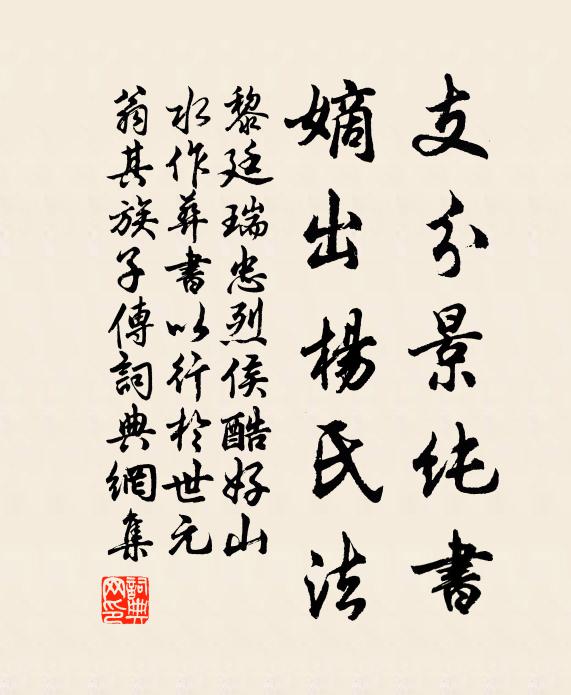 支分景纯書
嫡出楊氏法
黎廷瑞忠烈侯酷好山
水作葬書以行於世元
翁其族子傳詞典網集
詞典網印